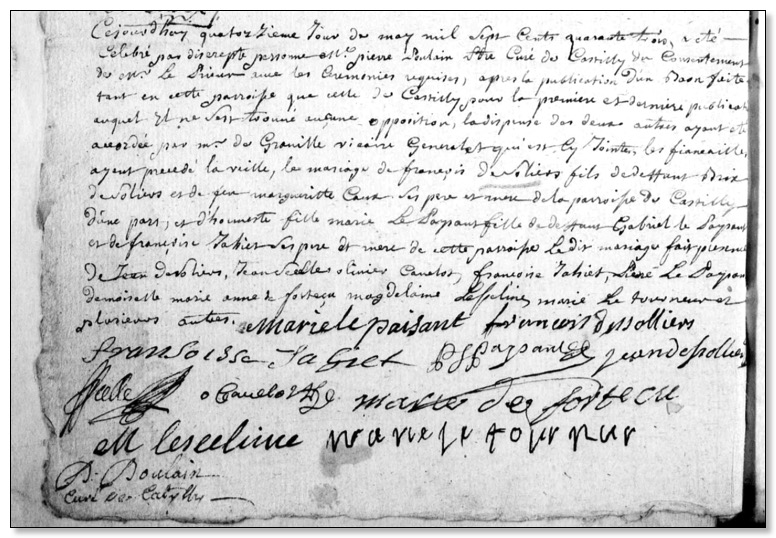 Cejourdhuy quatorzieme jour de may mil sept cents quarante trois, a eté
celebré par discrepte personne Mtre. pierre Poulain Ptre Curé de Castilly du consentement
de mr. le Prieur avec les Ceremonies requises, apres la publication d'un baon faite
tant en cette paroisse que celle de Castilly pour la premiere et derniere publicat
auquel Il ne s'est trouué aucune opposition, la dispense des deux autres ayant eté
accordée par mr. de Granville vicaire General et qui est cy jointe, les fiancailles
ayant precedé la veille, le mariage de françois desoliers fils de deffunt
desoliers et de feu margueritte Caux ses pere et mere de la paroisse de Castilly
d'une part; et d'honneste fille marie Le Paysant fille de deffunt Gabriel le Paysant
et de françoise Jahiet ses pere et mere de cette paroisse le dit mariage fait presence
de Jean desoliers, Jean Scelles olivier Cauelot, françoise Jahiet, René Le Paysan
demoiselle marie anne de forteçu magdelaine Lesceline, marie Le tourneur et
plusieurs autres. Marie le paisant francois dessolliers
fransoisse Jahiet Paysant jean desollier
Scelle o Cauelot marie de forteçu
M lesceline marie le tournur
P. Poulain
Curé de Castilly